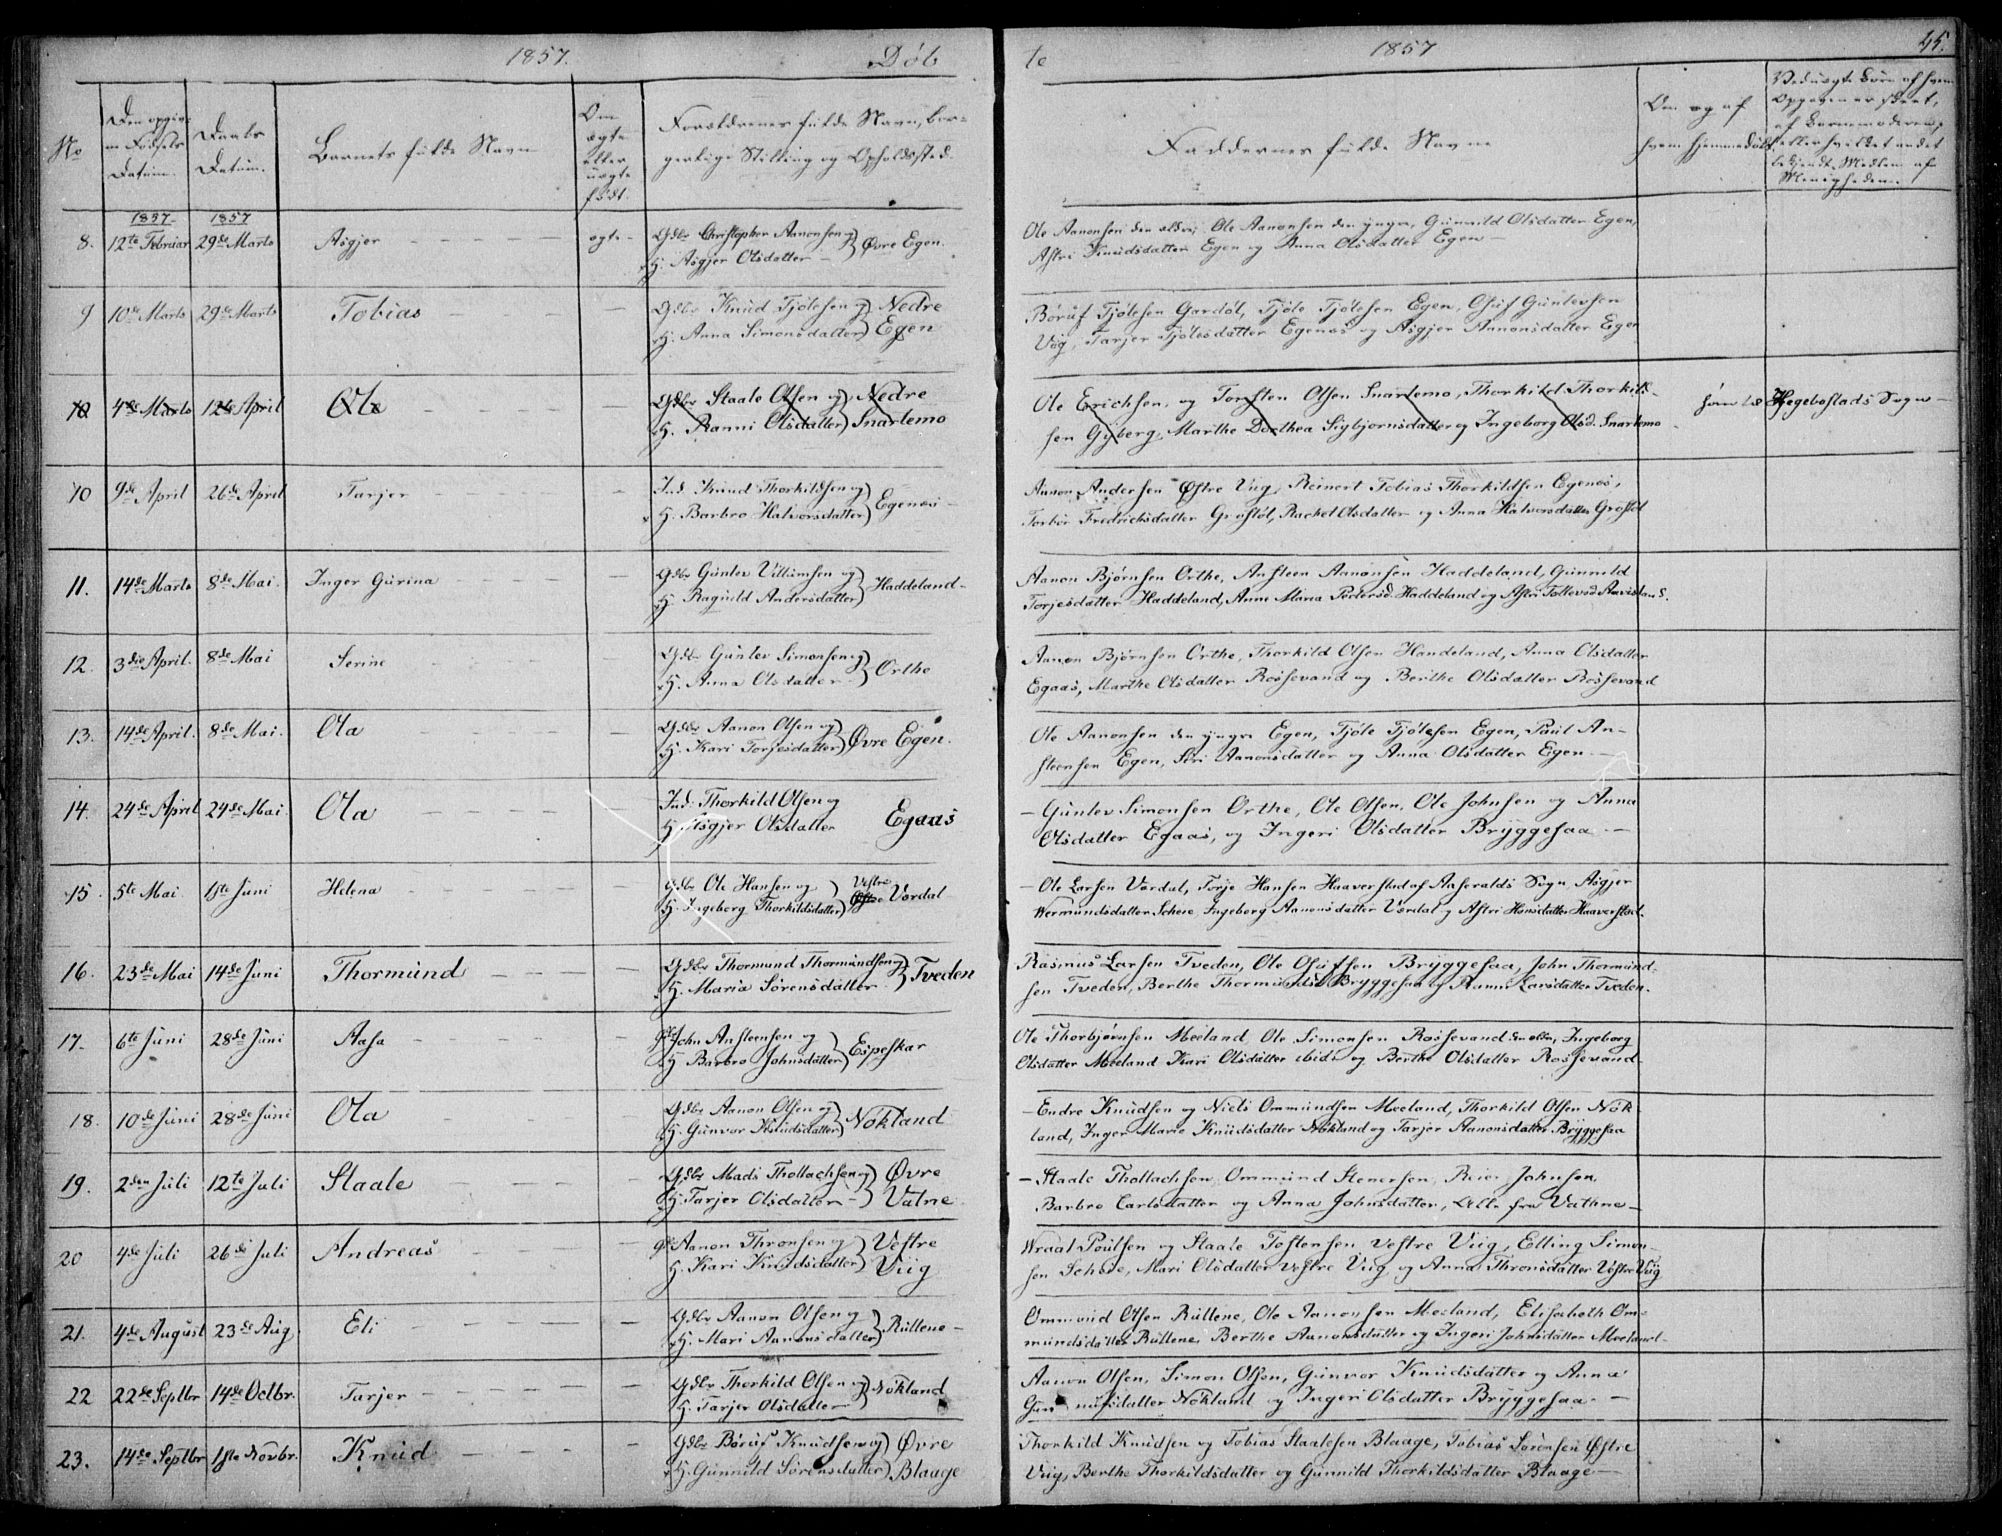 1857. Døb
te 1857 45.
No
Den opgiv-
ne Fødsels
Datum.
Daabs
Datum.
Barnets fulde Navn
Om
ægte
eller
uægte
født.
Forældrenes fulde Navn, bor-
gerlige Stilling og Opholdssted.
Faddernes fulde Navne
Om og af
hvem hjemmedøbt
Ved uægte Børn af hvem
Opgaven er skeet,
af Barnemoderen,
eller hvilket andet
bekjendt Medlem af
Menigheden.
1857. 1857
8. 12te Februar 29de Marts Asgjer ægte - Gdbr Christopher Aanonsen og
H. Asgjer Olsdatter Øvre Egen.
Ole Aanonsen den ældre, Ole Aanonsen den yngre, Gunnild Olsdatter Egen,
Astri Knudsdatter Egen og Anna Olsdatter Egen
9 10de Marts 29de Marts Tobias Gdbr Knud Tjølesen og Nedre
H. Anna Simonsdatter Egen
Børuf Tjølesen Gardøl, Tjøle Tjølesen Egen, Osuf Gunlevsen
Viig, Tarjer Tjølesdatter Egenæs og Asgjer Aanonsdatter Egen
10 4de Marts 12te April Ole Gdbr Staale Olsen og Nedre
H. Ranni Olsdatter Snartemo
Ole Erichsen og Torsten Olsen Snartemo, Thorkild Thorkild-
sen Gyberg, Marthe Dorthea Sigbjørnsdatter og Ingeborg Olsd. Snartemo
Hegebostads Sogn
10 9de April 26de April Tarjer Ind. Knud Thorkildsen og
H. Barbro Halvorsdatter Egenæs
Aanon Andersen Østre Viig, Reinert Tobias Thorkildsen Egenæs,
Torbør Fredrichsdatter Grøstøl, Rachel Olsdatter og Anna Halvorsdatter Grøstøl
11. 14de Marts 8de Mai. Inger Gurina Gdbr Gunlev Villumsen og
H. Ragnild Andersdatter Haddeland
Aanon Bjørnsen Orthe, Ansteen Aanonsen Haddeland, Gunnild
Torjesdatter Haddeland, Anne Maria Pedersd. Haddeland og Astri Tollevsd.
12. 3die April. 8de Mai Serine Gdbr Gunlev Simonsen og
H. Anna Olsdatter Orthe
Aanon Bjørnsen Orthe, Thorkild Olsen Handeland, Anna Olsdatter
Egaas, Marthe Olsdatter Rossevand og Berthe Olsdatter Rossevand
13. 14de April. 8de Mai. Ola Gdbr Aanon Olsen og
H. Kari Torjesdatter Øvre Egen.
Ole Aanonsen den yngre Egen, Tjøle Tjølesen Egen, Paul An-
steensen Egen, Siri Aanonsdatter og Anna Olsdatter Egen
14. 24de April 24de Mai. Ola Ind: Thorkild Olsen og
H. Asgjer Olsdatter Egaas
Gunlev Simonsen Orthe, Ole Olsen, Ole Johnsen og Anna
Olsdatter Egaas, og Ingeri Olsdatter Bryggesaa
15. 5te Mai 1ste Juni Helena Gdbr Ole Hansen og Vestre
H. Ingeborg Thorkildsdatter Østre Værdal
Ole Larsen Værdal, Torje Hansen Haaverstad af Aaseralds Sogn, Asgjer
Wermundsdatter Scheie, Ingeborg Aanonsdatter Værdal og Astri Hansdatter Haaverstad.
16. 23de Mai 14de Juni Thormund Gdbr Thormund Thormundsen og
H. Maria Sørensdatter Tveden
Rasmus Larsen Tveden, Ole Osufsen Bryggesaa, John Thormund-
sen Tveden, Berthe Thormundsd. Bryggesaa og Ranni Larsdatter Tveden.
17. 6te Juni 28de Juni Aasa Gdbr John Ansteensen og
H. Barbro Johnsdatter Espeskar
Ole Thorbjørnsen Moeland, Ole Simonsen Rossevand den eldre, Ingeborg
Olsdatter Moeland, Kari Olsdatter ibid. og Berthe Olsdatter Rossevand
18. 10de Juni 28de Juni Ola Gdbr Aanon Olsen og
H. Gunvor Knudsdatter Nøkland
Endre Knudsen og Niels Ommundsen Moeland, Thorkild Olsen Nøk-
land, Inger Marie Knudsdatter Nøkland og Tarjer Aanonsdatter Bryggesaa
19. 2den Juli 12te Juli Staale Gdbr Mads Thollachsen og Øvre
H. Tarjer Olsdatter Vatne
Staale Thollachsen, Ommund Stenersen, Reier Johnsen,
Barbro Carlsdatter og Anna Johnsdatter, alle fra Vathne
20 4de Juli 26de Juli Andreas Gdbr Aanon Thronsen og Vestre
H. Kari Knudsdatter Viig
Wraal Poulsen og Staale Tostensen vestre Viig, Elling Simon-
sen Scheie, Mari Olsdatter vestre Viig og Anna Thronsdatter Vestre Viig
21. 4de August 23de Aug. Eli Gdbr Aanon Olsen og
H. Mari Aanonsdatter Rullene
Ommund Olsen Rullene, Ole Aanonsen Moeland, Elisabeth Om-
mundsdatter Rullene, Berthe Aanonsdatter og Ingeri Johnsdatter Moeland
22 22de Septbr 14de Octbr. Tarjer Gdbr Thorkild Olsen og
H. Tarjer Olsdatter Nøkland
Aanon Olsen, Simon Olsen, Gunvor Knudsdatter og Anna
Nøkland og Ingeri Olsdatter Bryggesaa
23. 14de Septbr 1ste Novbr. Knud Gdbr Børuf Knudsen og Øvre
H. Gunnild Sørensdatter Blaage
Thorkild Knudsen og Tobias Staalesen Blaage, Tobias Sørensen Østre
Viig, Berthe Thorkildsdatter og Gunnild Thorkildsdatter Blaage